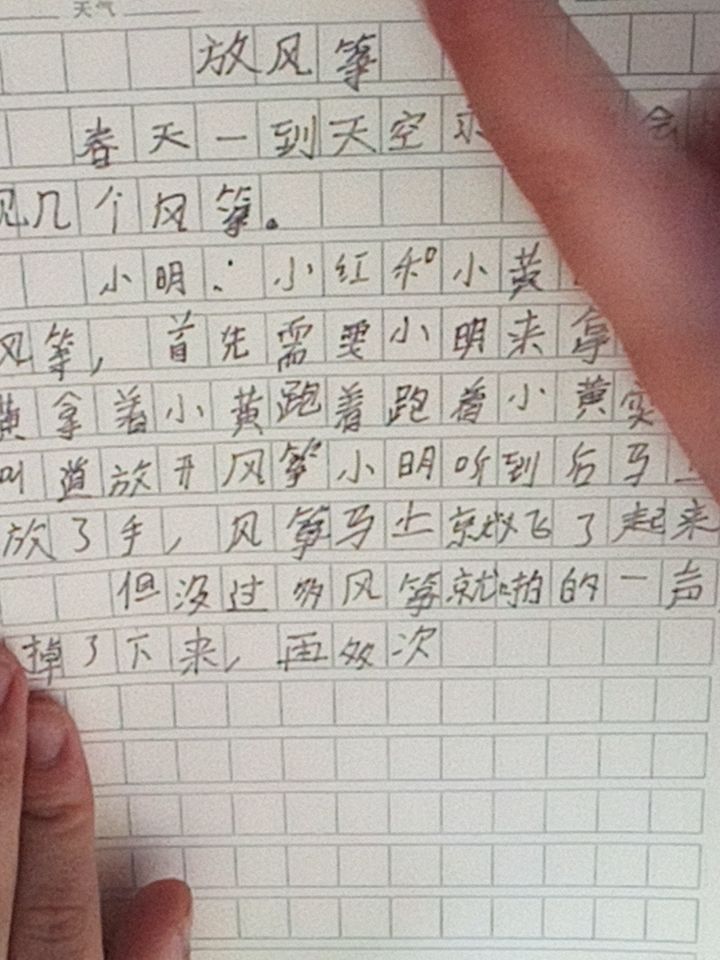 天气
放风筝
春天一到天空 会
见几个风筝。
小明、小红和小黄
风筝，首先需要小明来拿
黄拿着小黄跑着跑着小黄突
叫道放开风筝小明听到后马上
放了手，风筝马上就飞了起来
但没过多风筝就啪的一声
掉了下来，再多次